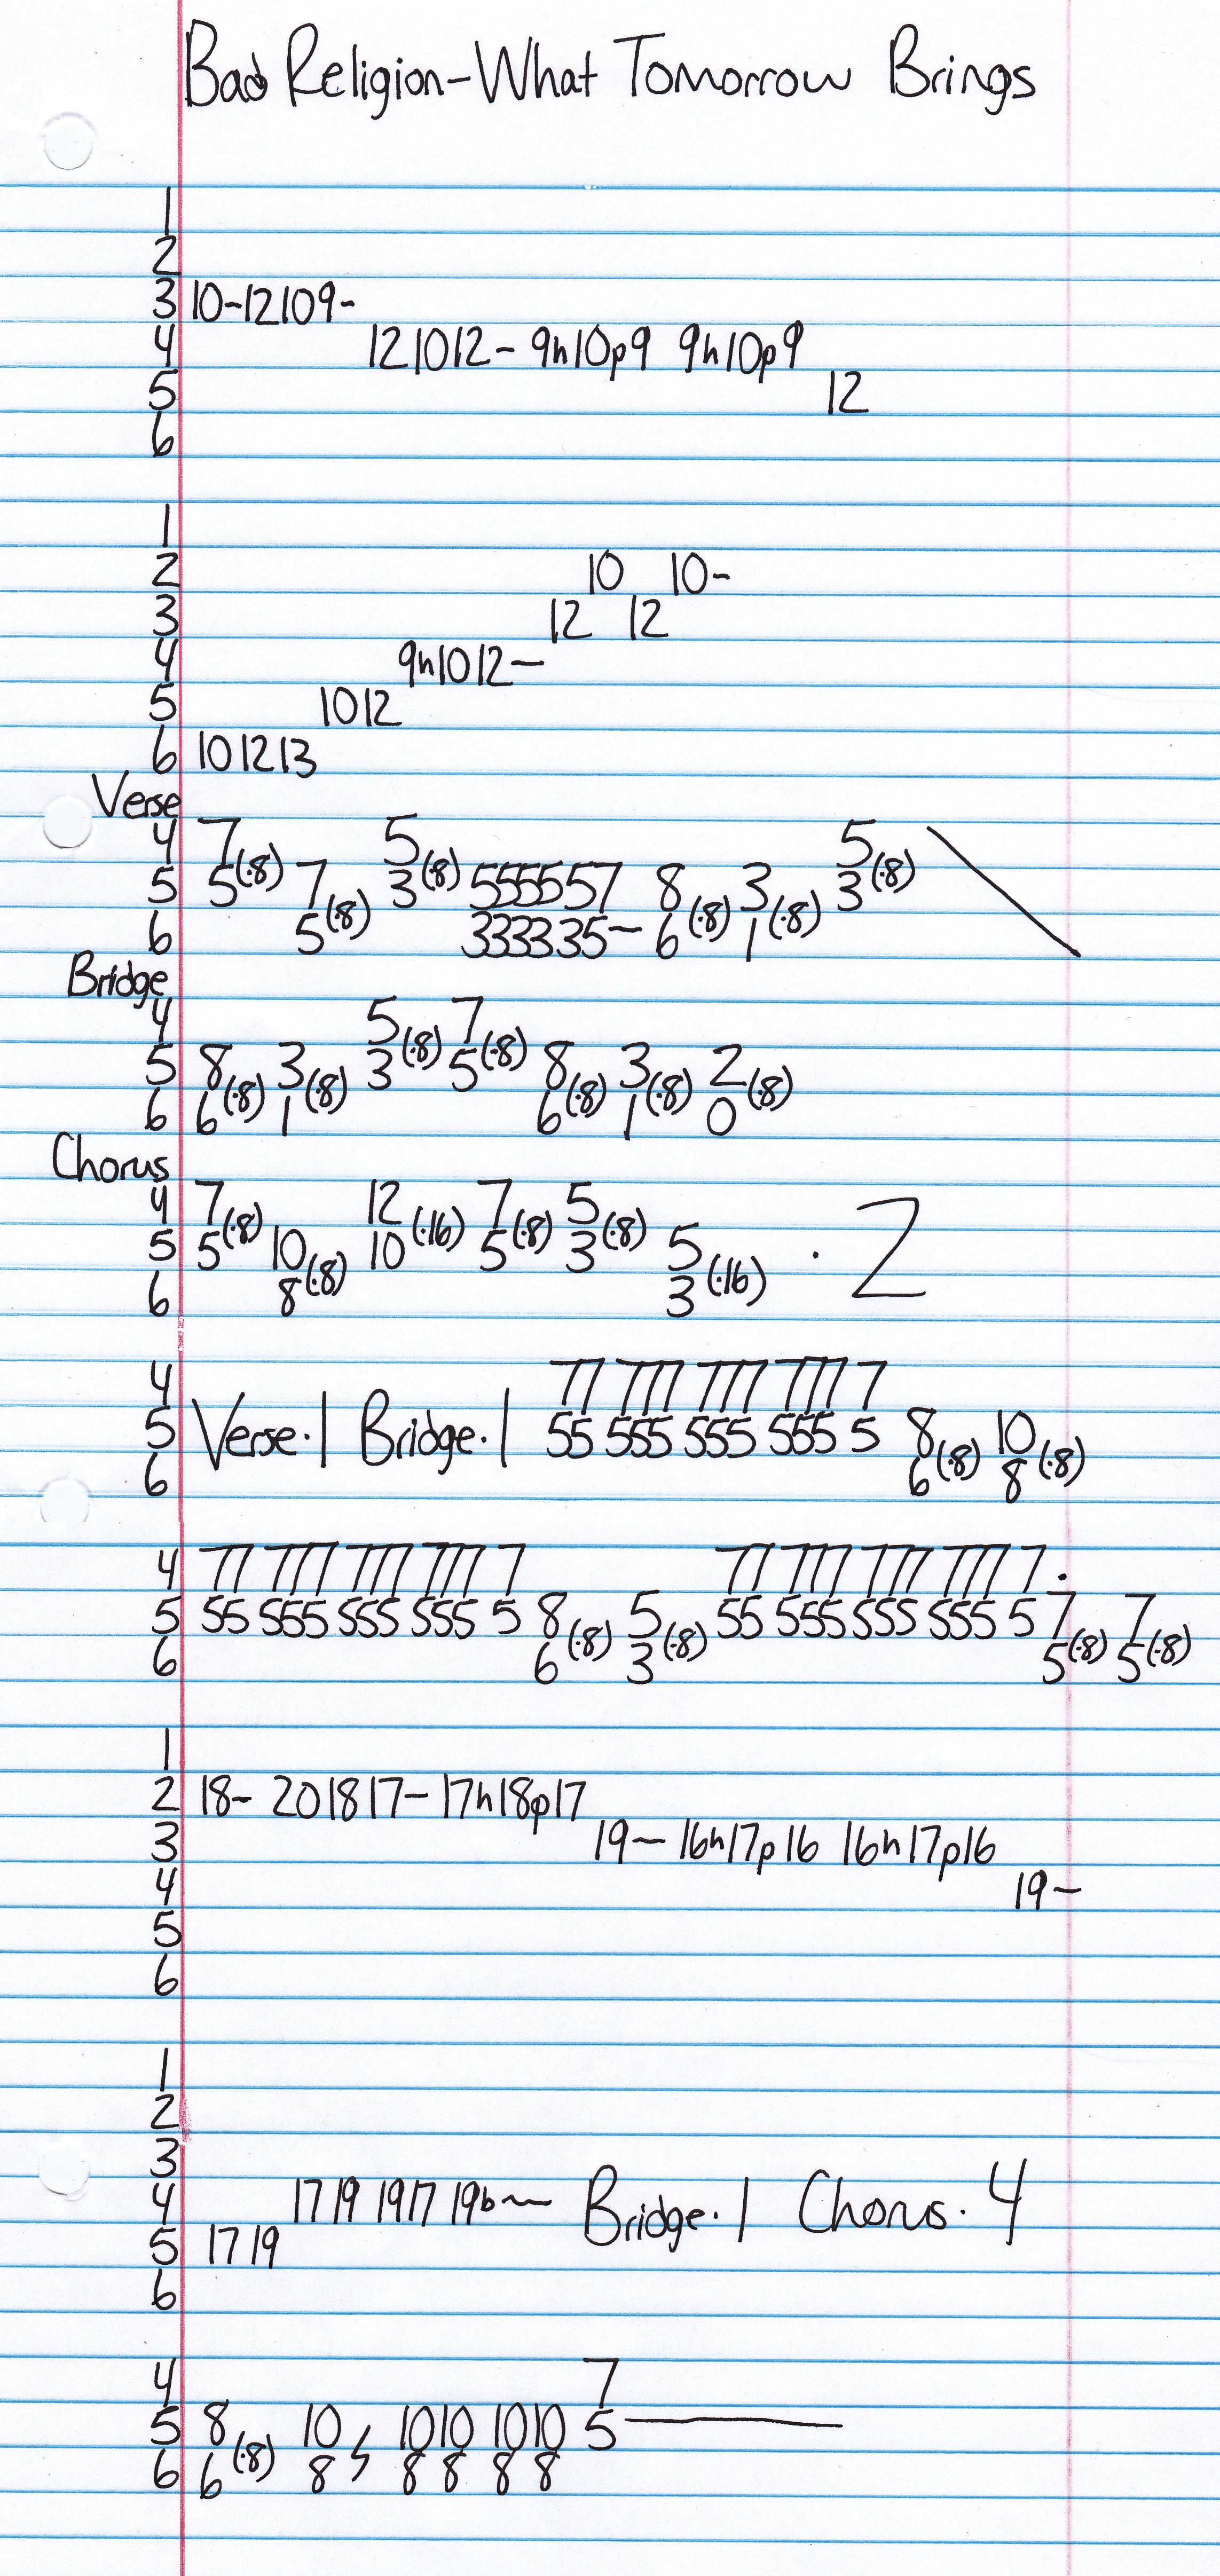 Bad Religion-What Tomorrow Brings
1
2
3 10-12109-
4 121012- 9h10p9 9h10p9
5 12
6
1
2 10 10-
3 12 12
4 9h1012-
5 1012
6 101213
Verse
4 7 5 5
5 5(·8) 7 3(·8) 5555557 8 3 3(·8)
6 5(·8) 3333335- 6(·8) 1(·8)
Bridge
4 5 7
5 8 3 3(·8) 5(·8) 8 3 2
6 6(·8) 1(·8) 6(·8) 1(·8) 0(·8)
Chorus
4 7 12 7 5
5 5(·8) 10 10(·16) 5(·8) 3(·8) 5 · 2
6 8(·8) 3(·16)
4 77 777 777 777 7
5 Verse·1 Bridge·1 55 555 555 555 5 8 10
6 6(·8) 8(·8)
4 77 777 777 777 7 77 777 777 777 7.
5 55 555 555 555 5 8 5 55 555 555 555 5 7 7
6 6(·8) 3(·8) 5(·8) 5(·8)
1
2 18- 201817- 17h18p17
3 19- 16h17p16 16h17p16
4 19-
5
6
1
2
3
4 1719 1917 19b~ Bridge·1 Chorus·4
5 1719
6
4 7
5 8 10 1010 1010 5
6 6(·8) 8 8 8 8 8